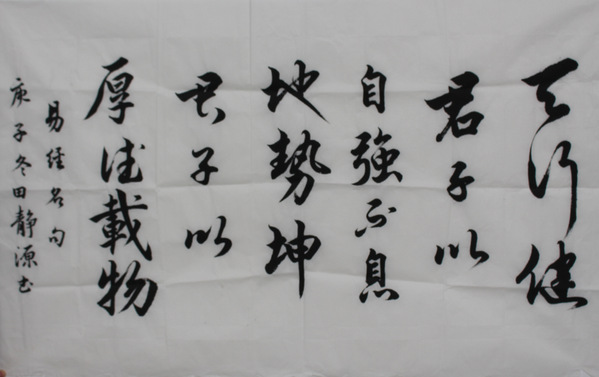 天行健
君子以
自強不息
地勢坤
君子以
厚德載物
易経名句
庚子冬田静源书